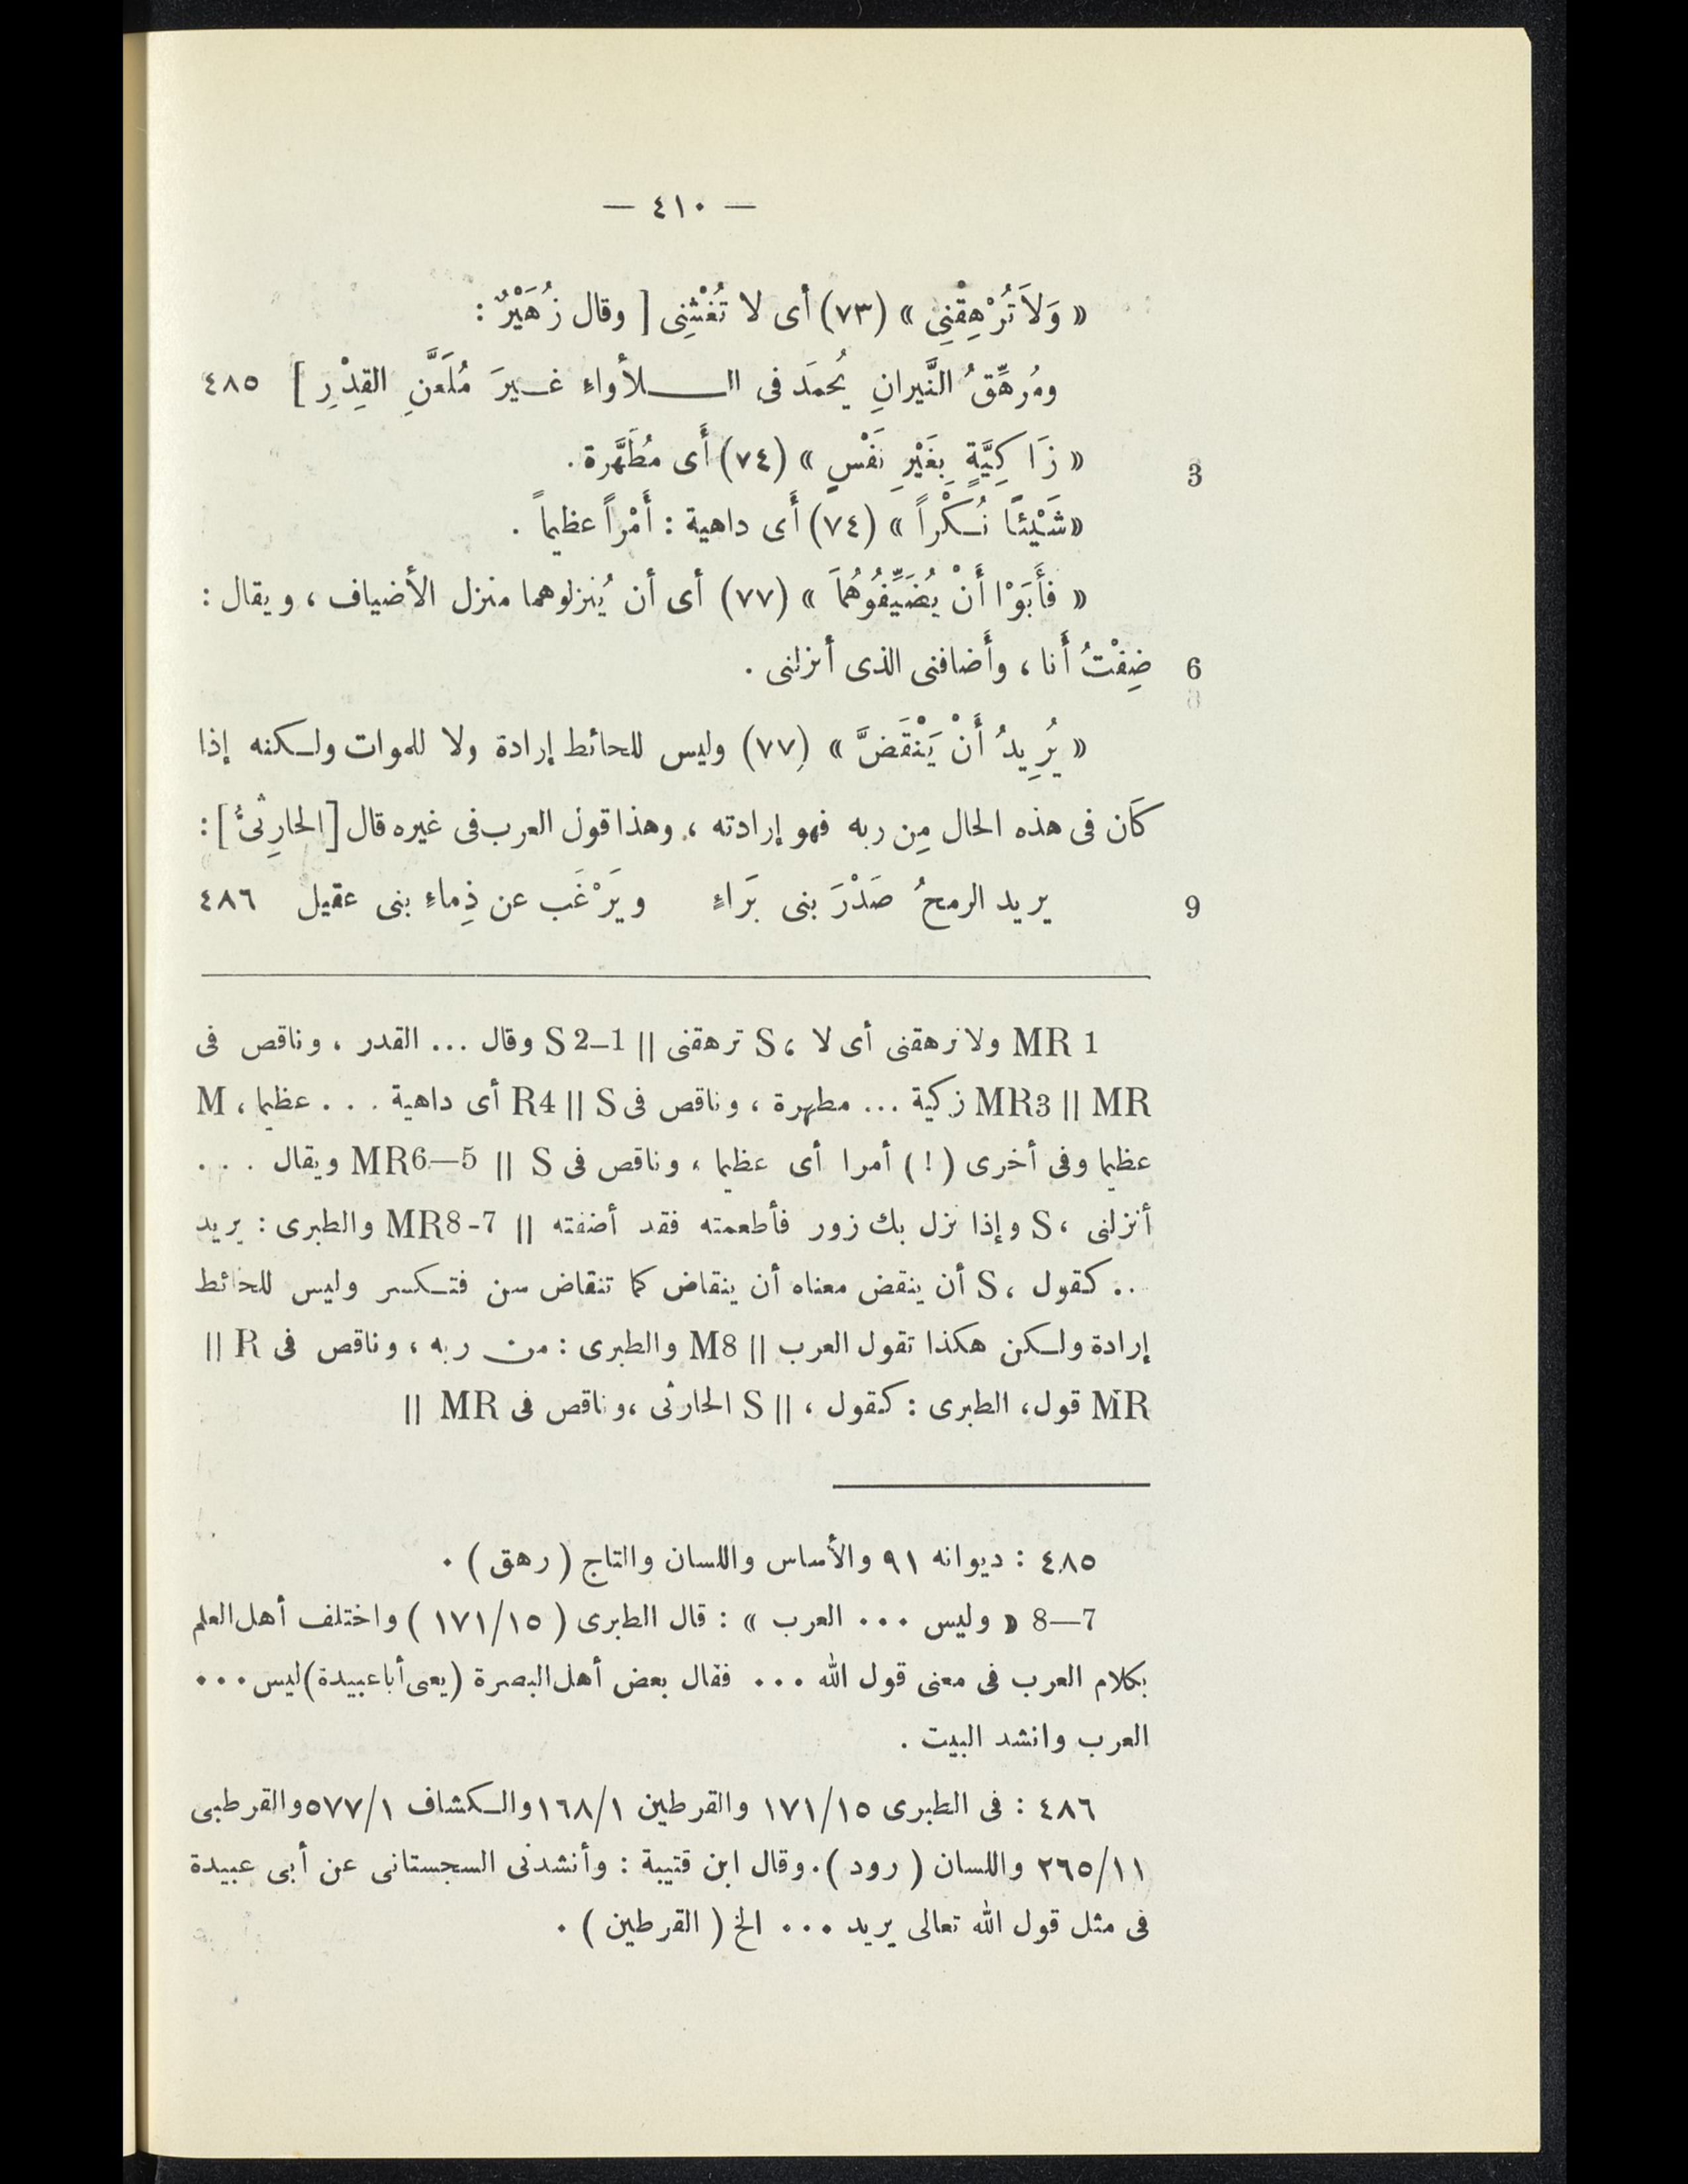 — ٤١٠ —
« وَلاَ تُرْهِقْنِى » (٧٣) أى لا تُغْشِنِى [ وقال زُهَيْرٌ :
ومُرهِّقُ النَّيرانِ يُحمَد فى الـلأواءِ غـيرَ مُلَعَّنِ القِدْرِ ] ٤٨٥
« زَاكِيَّةٍ بِغَيْرِ نَفْسٍ » (٧٤) أَى مُطَهَّرة . 3
«شَيْئًا نُـكْراً » (٧٤) أَى داهية : أَمْراً عظيماً .
« فأَبَوْا أَنْ يُضَيِّفُوُهُمَا » (٧٧) أى أن يُنزلوهما منزل الأضياف ، ويقال :
ضِفْتُ أَنا ، وأَضافنى الذى أنزلنى . 6
« يُرِيدُ أَنْ يَنْقَضَّ » (٧٧) وليس للحائط إرادة ولا للموات ولـكنه إذا
كاَن فى هذه الحال مِن ربه فهو إرادته ، وهذا قول العرب فى غيره قال [الحارِثىُّ ] :
يريد الرمحُ صَدْرَ بنى بَرَاءٍ ويَرْغَب عن دِماءِ بنى عقيل ٤٨٦ 9
MR 1 ولا ترهقنى أى لا ، S ترهقنى || S 2–1 وقال ... القدر ، وناقص فى
MR || MR3 زكية ... مطهرة ، وناقص فى S || R4 أى داهية . . . عظيما ، M
عظيما وفى أخرى ( ! ) أمرا أى عظيما ، وناقص فى S || MR6—5 ويقال . . .
أنزلنى ، S وإذا نزل بك زور فأطعمته فقد أضفته || MR8-7 والطبرى : يريد
.. كقول ، S أن ينقض معناه أن ينقاض كما تنقاض سن فتـكسر وليس للحائط
إرادة ولـكن هكذا تقول العرب || M8 والطبرى : من ربه ، وناقص فى R ||
MR قول، الطبرى : كقول ، || S الحارثى ،وناقص فى MR ||
٤٨٥ : ديوانه ٩١ والأساس واللسان والتاج ( رهق ) .
8—7 « وليس ... العرب » : قال الطبرى ( ١٧١/١٥ ) واختلف أهل العلم
بكلام العرب فى معنى قول الله ... فقال بعض أهل البصرة (يعى أباعبيدة) ليس ...
العرب وانشد البيت .
٤٨٦ : فى الطبرى ١٧١/١٥ والقرطين ١٦٨/١ والـكشاف ٥٧٧/١ والقرطبى
٢٦٥/١١ واللسان ( رود ). وقال ابن قتيبة : وأنشدنى السجستانى عن أبى عبيدة
فى مثل قول الله تعالى يريد ... الخ ( القرطين ) .